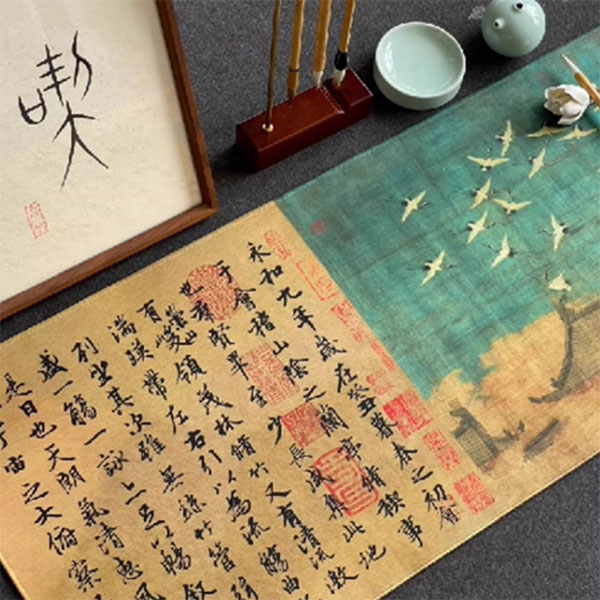 喫
永和九年歲在癸丑暮春之初會
于會稽山陰之蘭亭脩稧事
也羣賢畢至少長咸集此地
有崇山峻領茂林脩竹又有清流激
湍暎帶左右引以為流觴曲
列坐其次雖無絲竹管
盛一觴一詠亦足以暢敘
是日也天朗氣清惠風
宇宙之大俯察